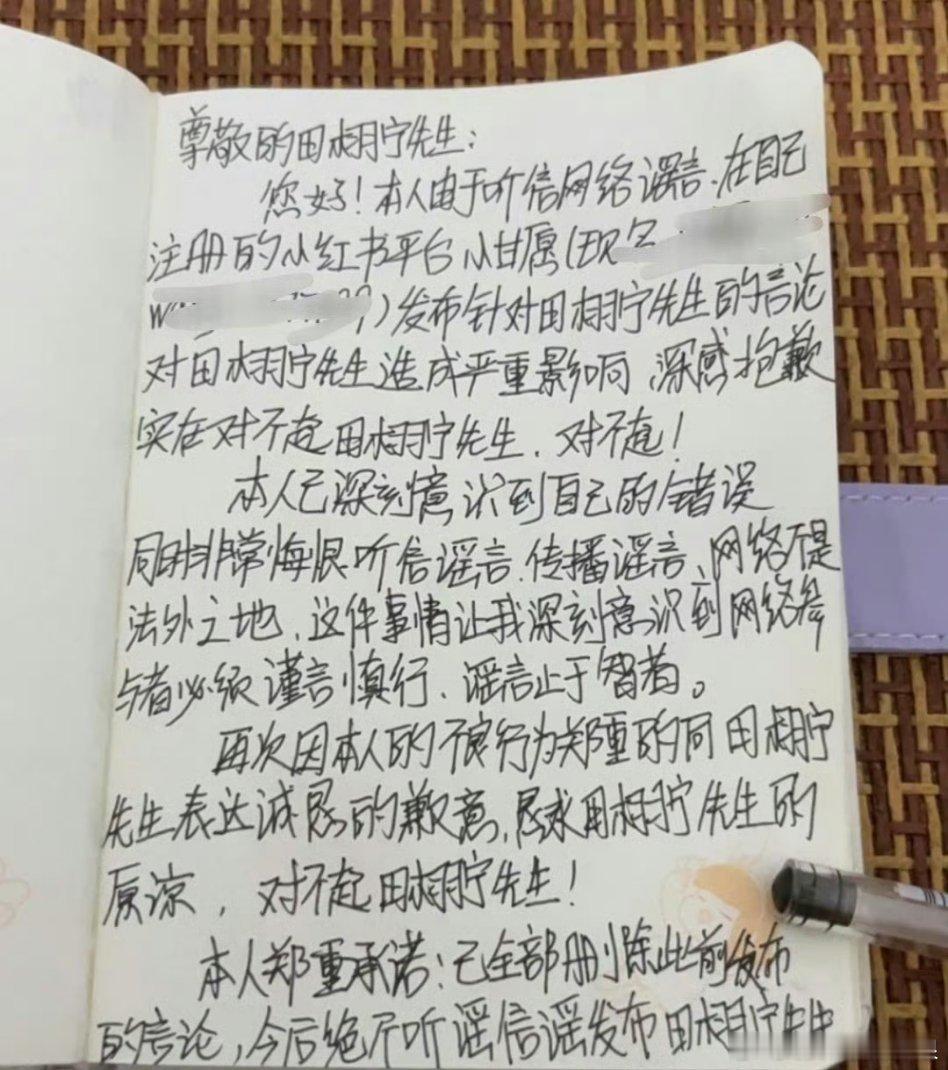 尊敬的田栩宁先生：
您好！本人由于听信网络谣言、在自己
注册的小红书平台小甘愿(现名
w 99）发布针对田栩宁先生的言论
对田栩宁先生造成严重影响、深感抱歉
实在对不起田栩宁先生、对不起！
本人已深刻意识到自己的错误
同时非常悔恨听信谣言、传播谣言、网络不是
法外之地、这件事情让我深刻意识到网络参
与者必须谨言慎行、谣言止于智者。
再次因本人的不良行为郑重的向田栩宁
先生表达诚恳的歉意、恳求田栩宁先生的
原谅，对不起田栩宁先生！
本人郑重承诺：已全部删除此前发布
的言论，今后绝不听谣信谣发布田栩宁先生